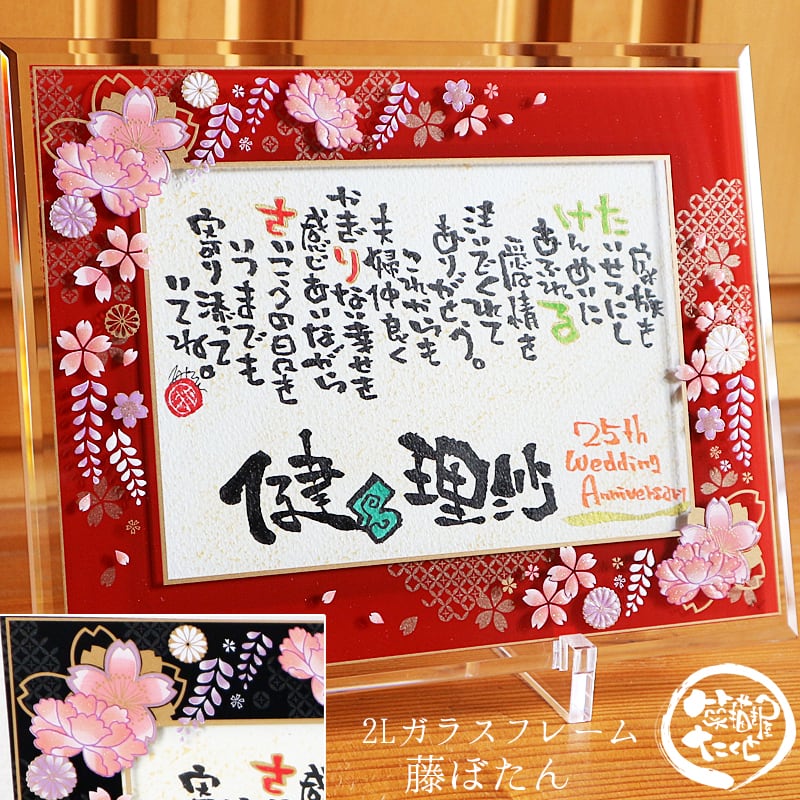 家族を
たいせつにし
けんめいに
あふれる
愛情を
注いでくれて
ありがとう。
これからも
夫婦仲良く
かぎりない幸せを
感じあいながら
さいこうの日々を
いつまでも
寄り添って
いてね。
健 理紗
25th
Wedding
Anniversary
2Lガラスフレーム
藤ぼたん